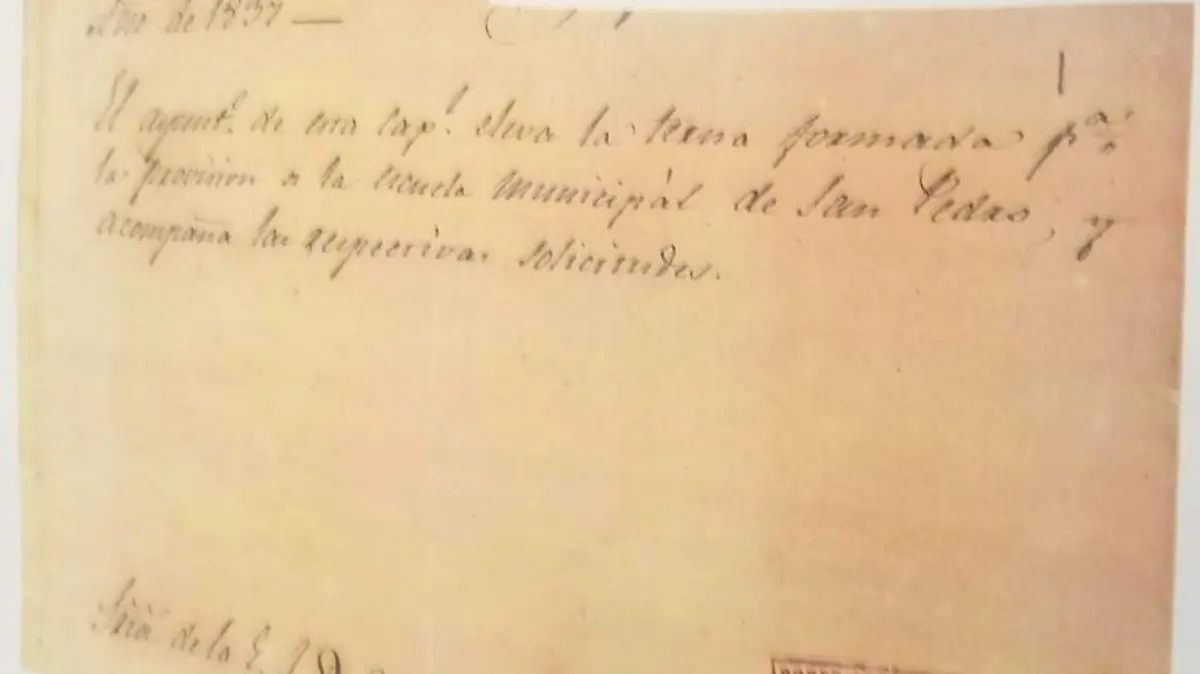 Año de 1837 —
El ayunt.º de esta cap.l eleva la terna formada p.a
la provision de la escuela municipál de San Pedro, y
acompaña las respectivas solicitudes.
Sria de la E.